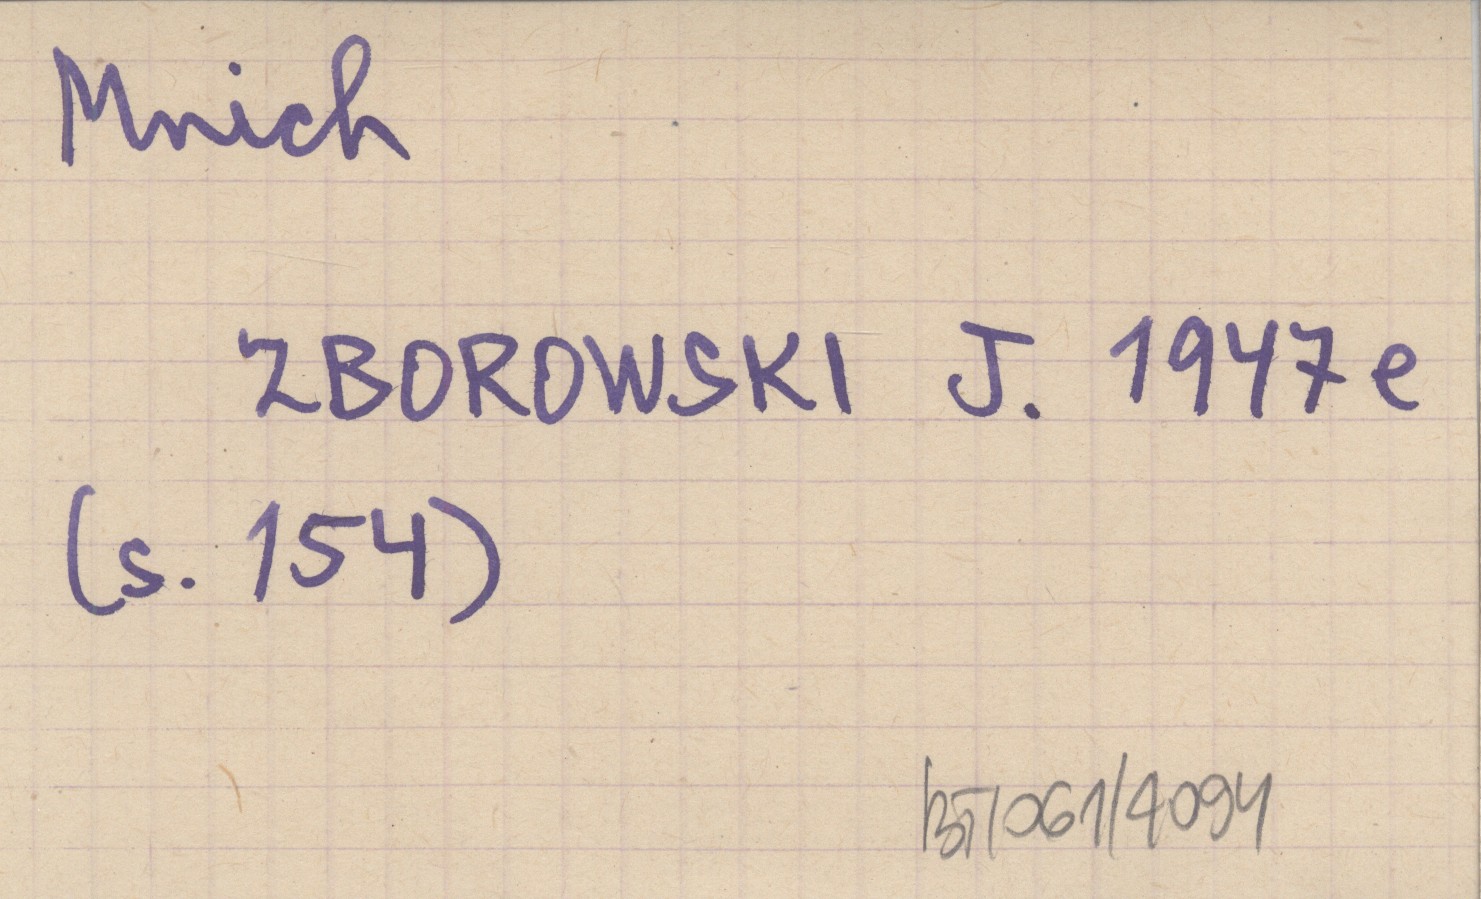 Mnich
ZBOROWSKI J. 1947 e
(s. 154)
BT/061/4094